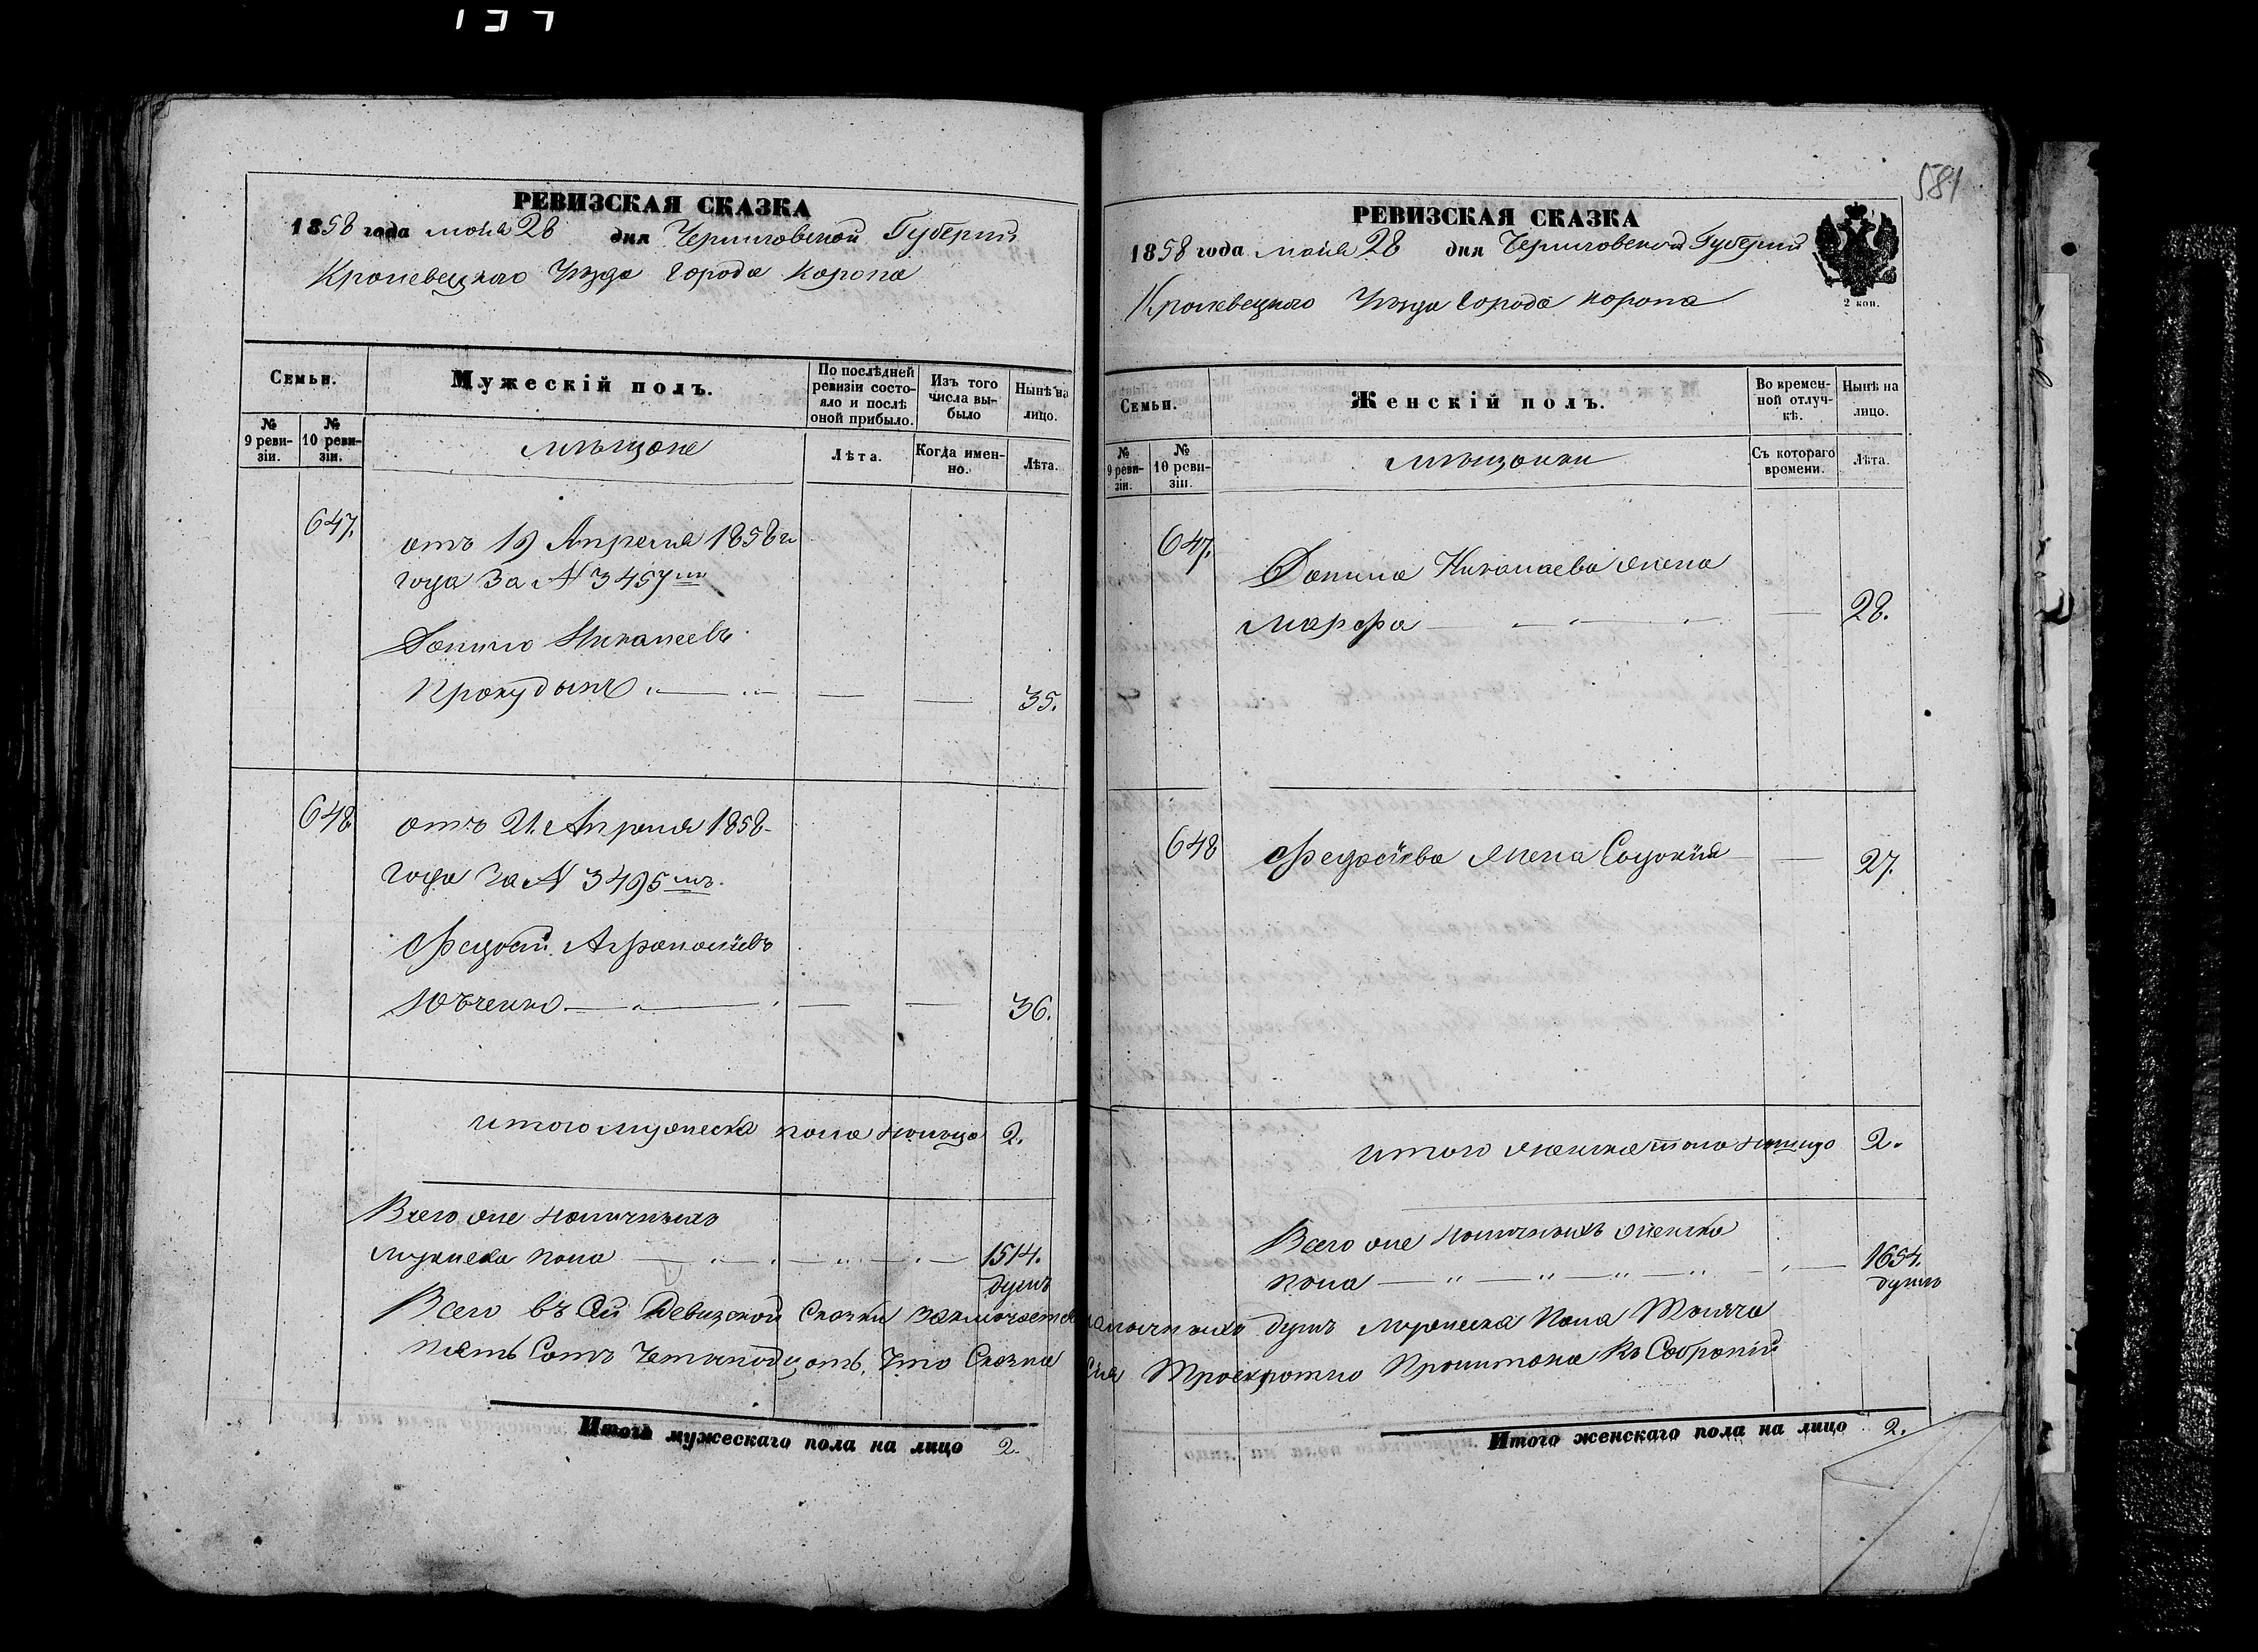 581
РЕВИЗСКАЯ СКАЗКА
1858 года мая 28 дня Черниговской Губерніи
Кролевецкаго Уезда города Коропа
Семьи.
№ 9 ревизіи.
№ 10 ревизіи.
Мужескій полъ.
мѣщане
По послѣдней ревизіи состояло и послѣ оной прибыло.
Лѣта.
Изъ того числа выбыло
Когда именно.
Нынѣ на лицо.
Лѣта.
647.
отъ 19 Апреля 1858
года За № 3457
Данило Николаевъ
Прокудинъ 35.
648
отъ 21. Апреля 1858
года За № 3495
Федосій Афанасіевъ
Юрченко 36.
итого мужеска пола налицо 2.
Всего оне наличныхъ
мужеска пола 1514.
душъ
Всего въ Сей Ревизской Сказки заключается наличныхъ душъ мужеска Пола Тысяча
пять Сотъ Четырнадцать, Что Сказка Сия Троекратно Прочитана Въ Собраніи
Итого мужескаго пола на лицо 2.
РЕВИЗСКАЯ СКАЗКА
1858 года мая 28 дня Черниговской Губерніи
2 коп.
Кролевецкаго Уезда города Коропа
Семьи.
№ 9 ревизіи.
№ 10 ревизіи.
Женскій полъ.
мѣщанки
Во временной отлучкѣ.
Съ котораго времени.
Нынѣ на лицо.
Лѣта.
647.
Данила Николаева жена
Марфа 28.
648
Федосіева жена 27.
итого женска пола налицо 2.
Всего оне наличныхъ женска
пола 1654.
душъ
Итого женскаго пола на лицо 2.